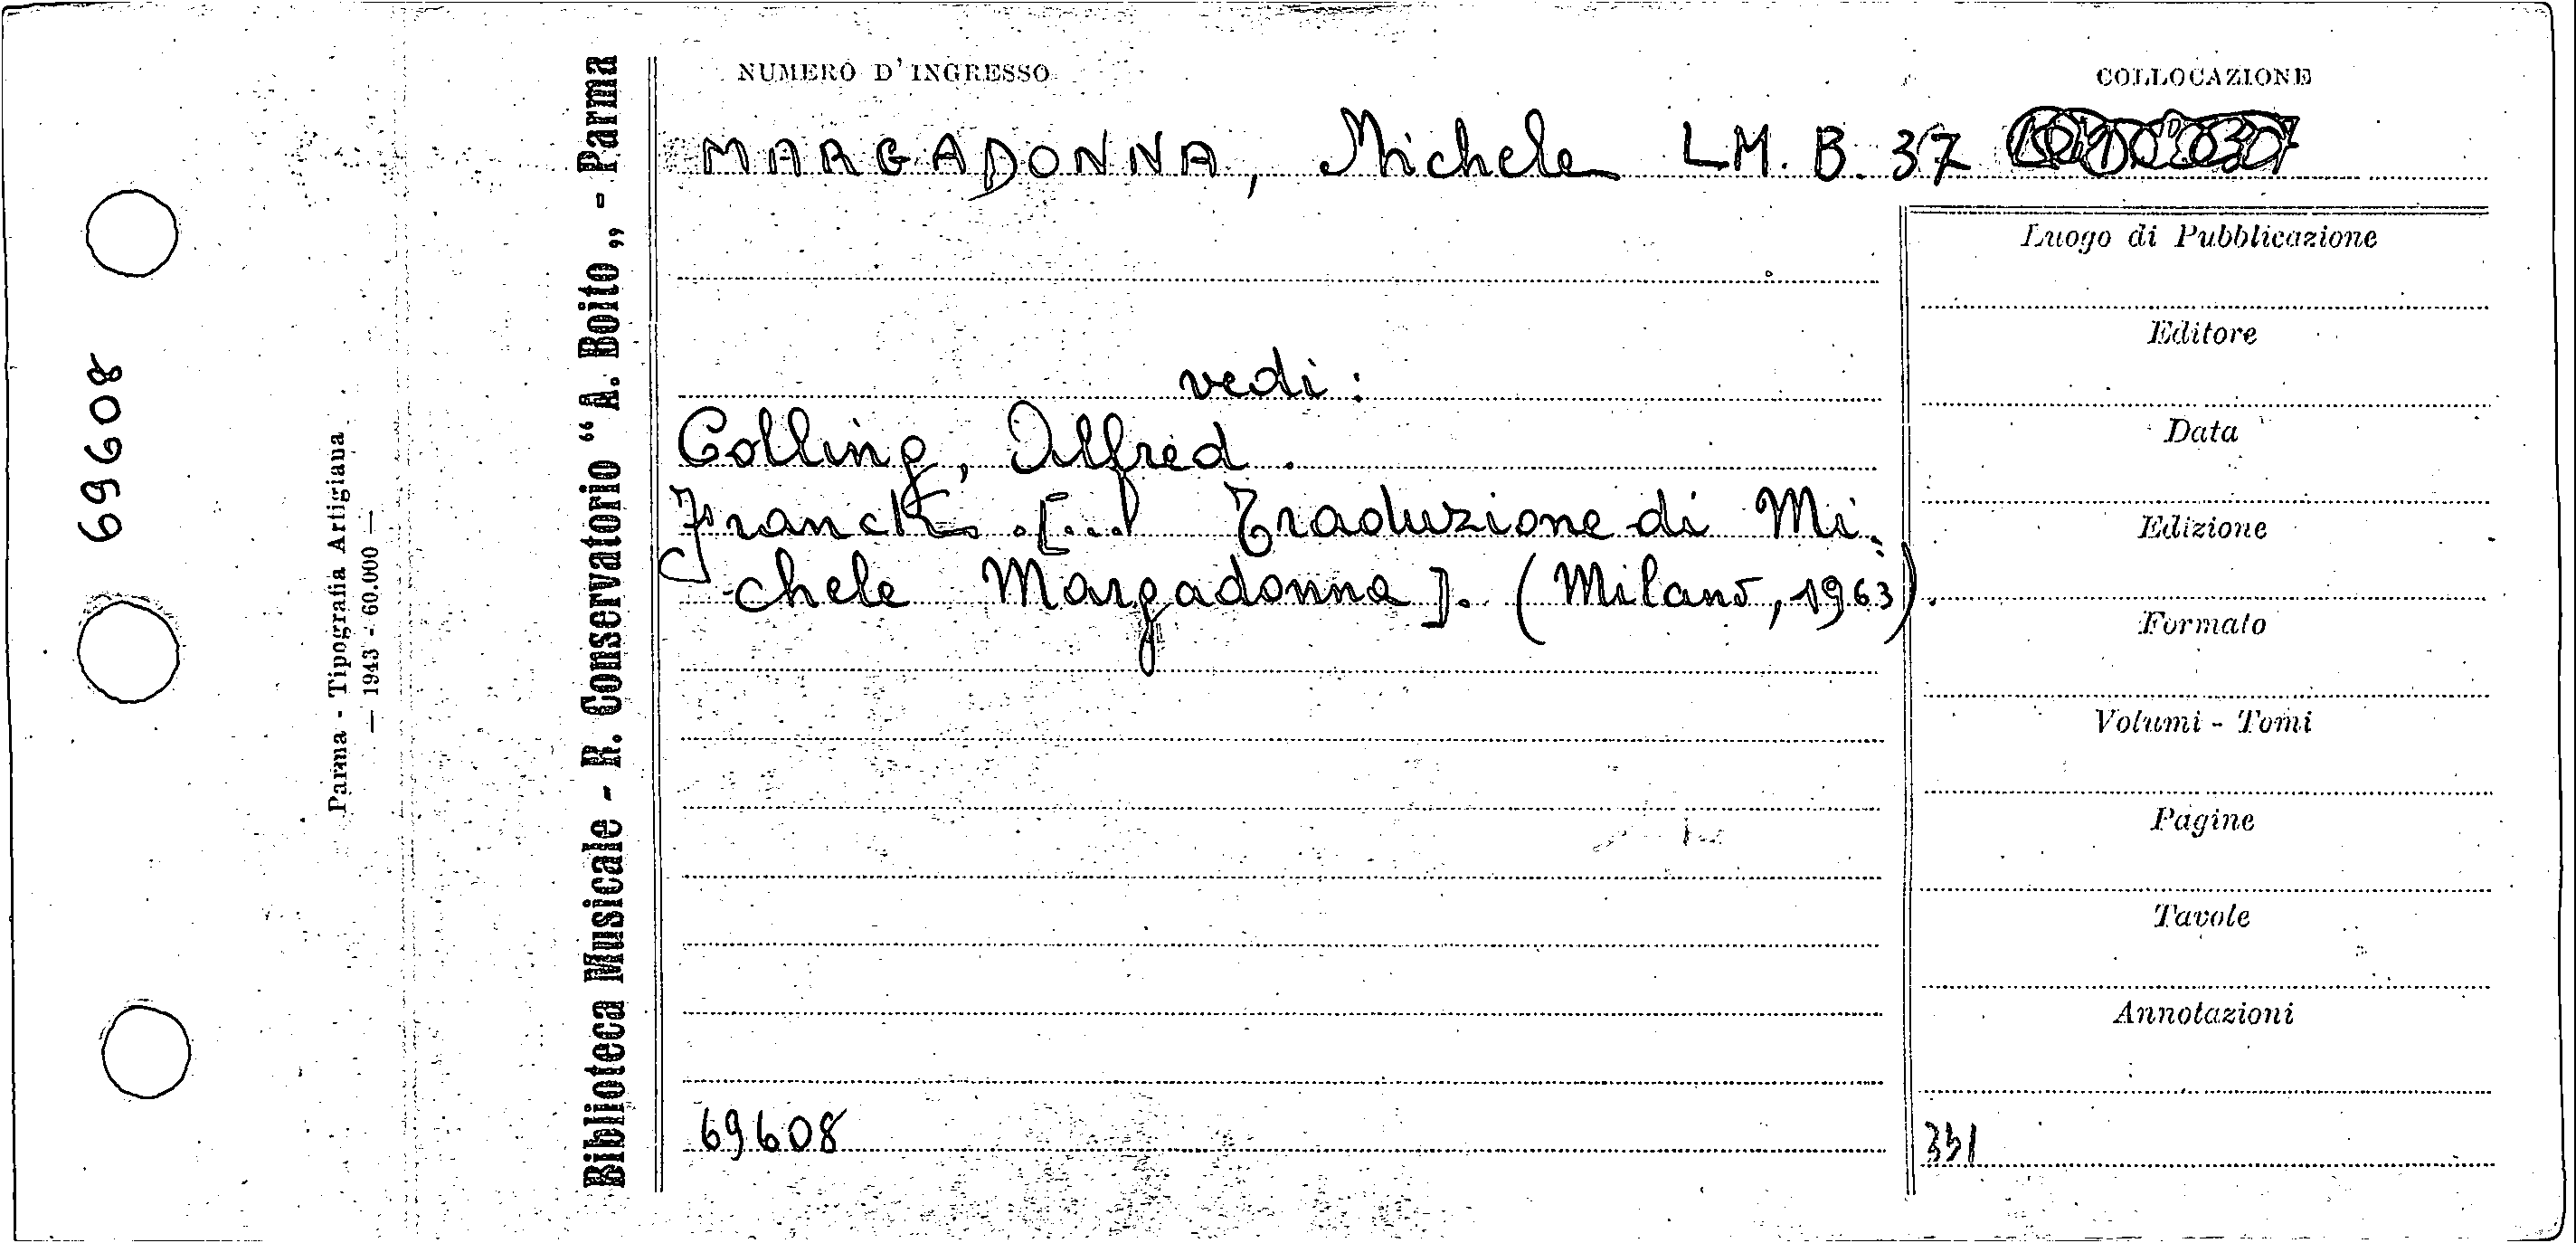 69608
Parma - Tipografia Artigiana
— 1943 - 60.000 —
Biblioteca Musicale - R. Conservatorio “A. Boito„ - Parma
NUMERO D'INGRESSO
COLLOCAZIONE
MARGADONNA, Michele LM. B. 37
vedi:
Colling, Alfred.
Franck. [... Traduzione di Mi-
chele Margadonna]. (Milano, 1963).
69608
Luogo di Pubblicazione
Editore
Data
Edizione
Formato
Volumi - Tomi
Pagine
Tavole
Annotazioni